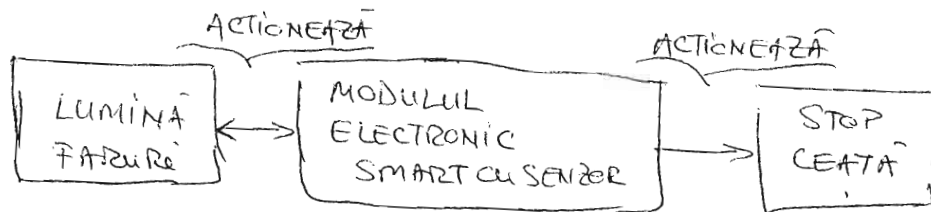 ACTIONEAZĂ
ACTIONEAZĂ
LUMINĂ
FARURI
MODULUL
ELECTRONIC
SMART CU SENZOR
STOP
CEATĂ